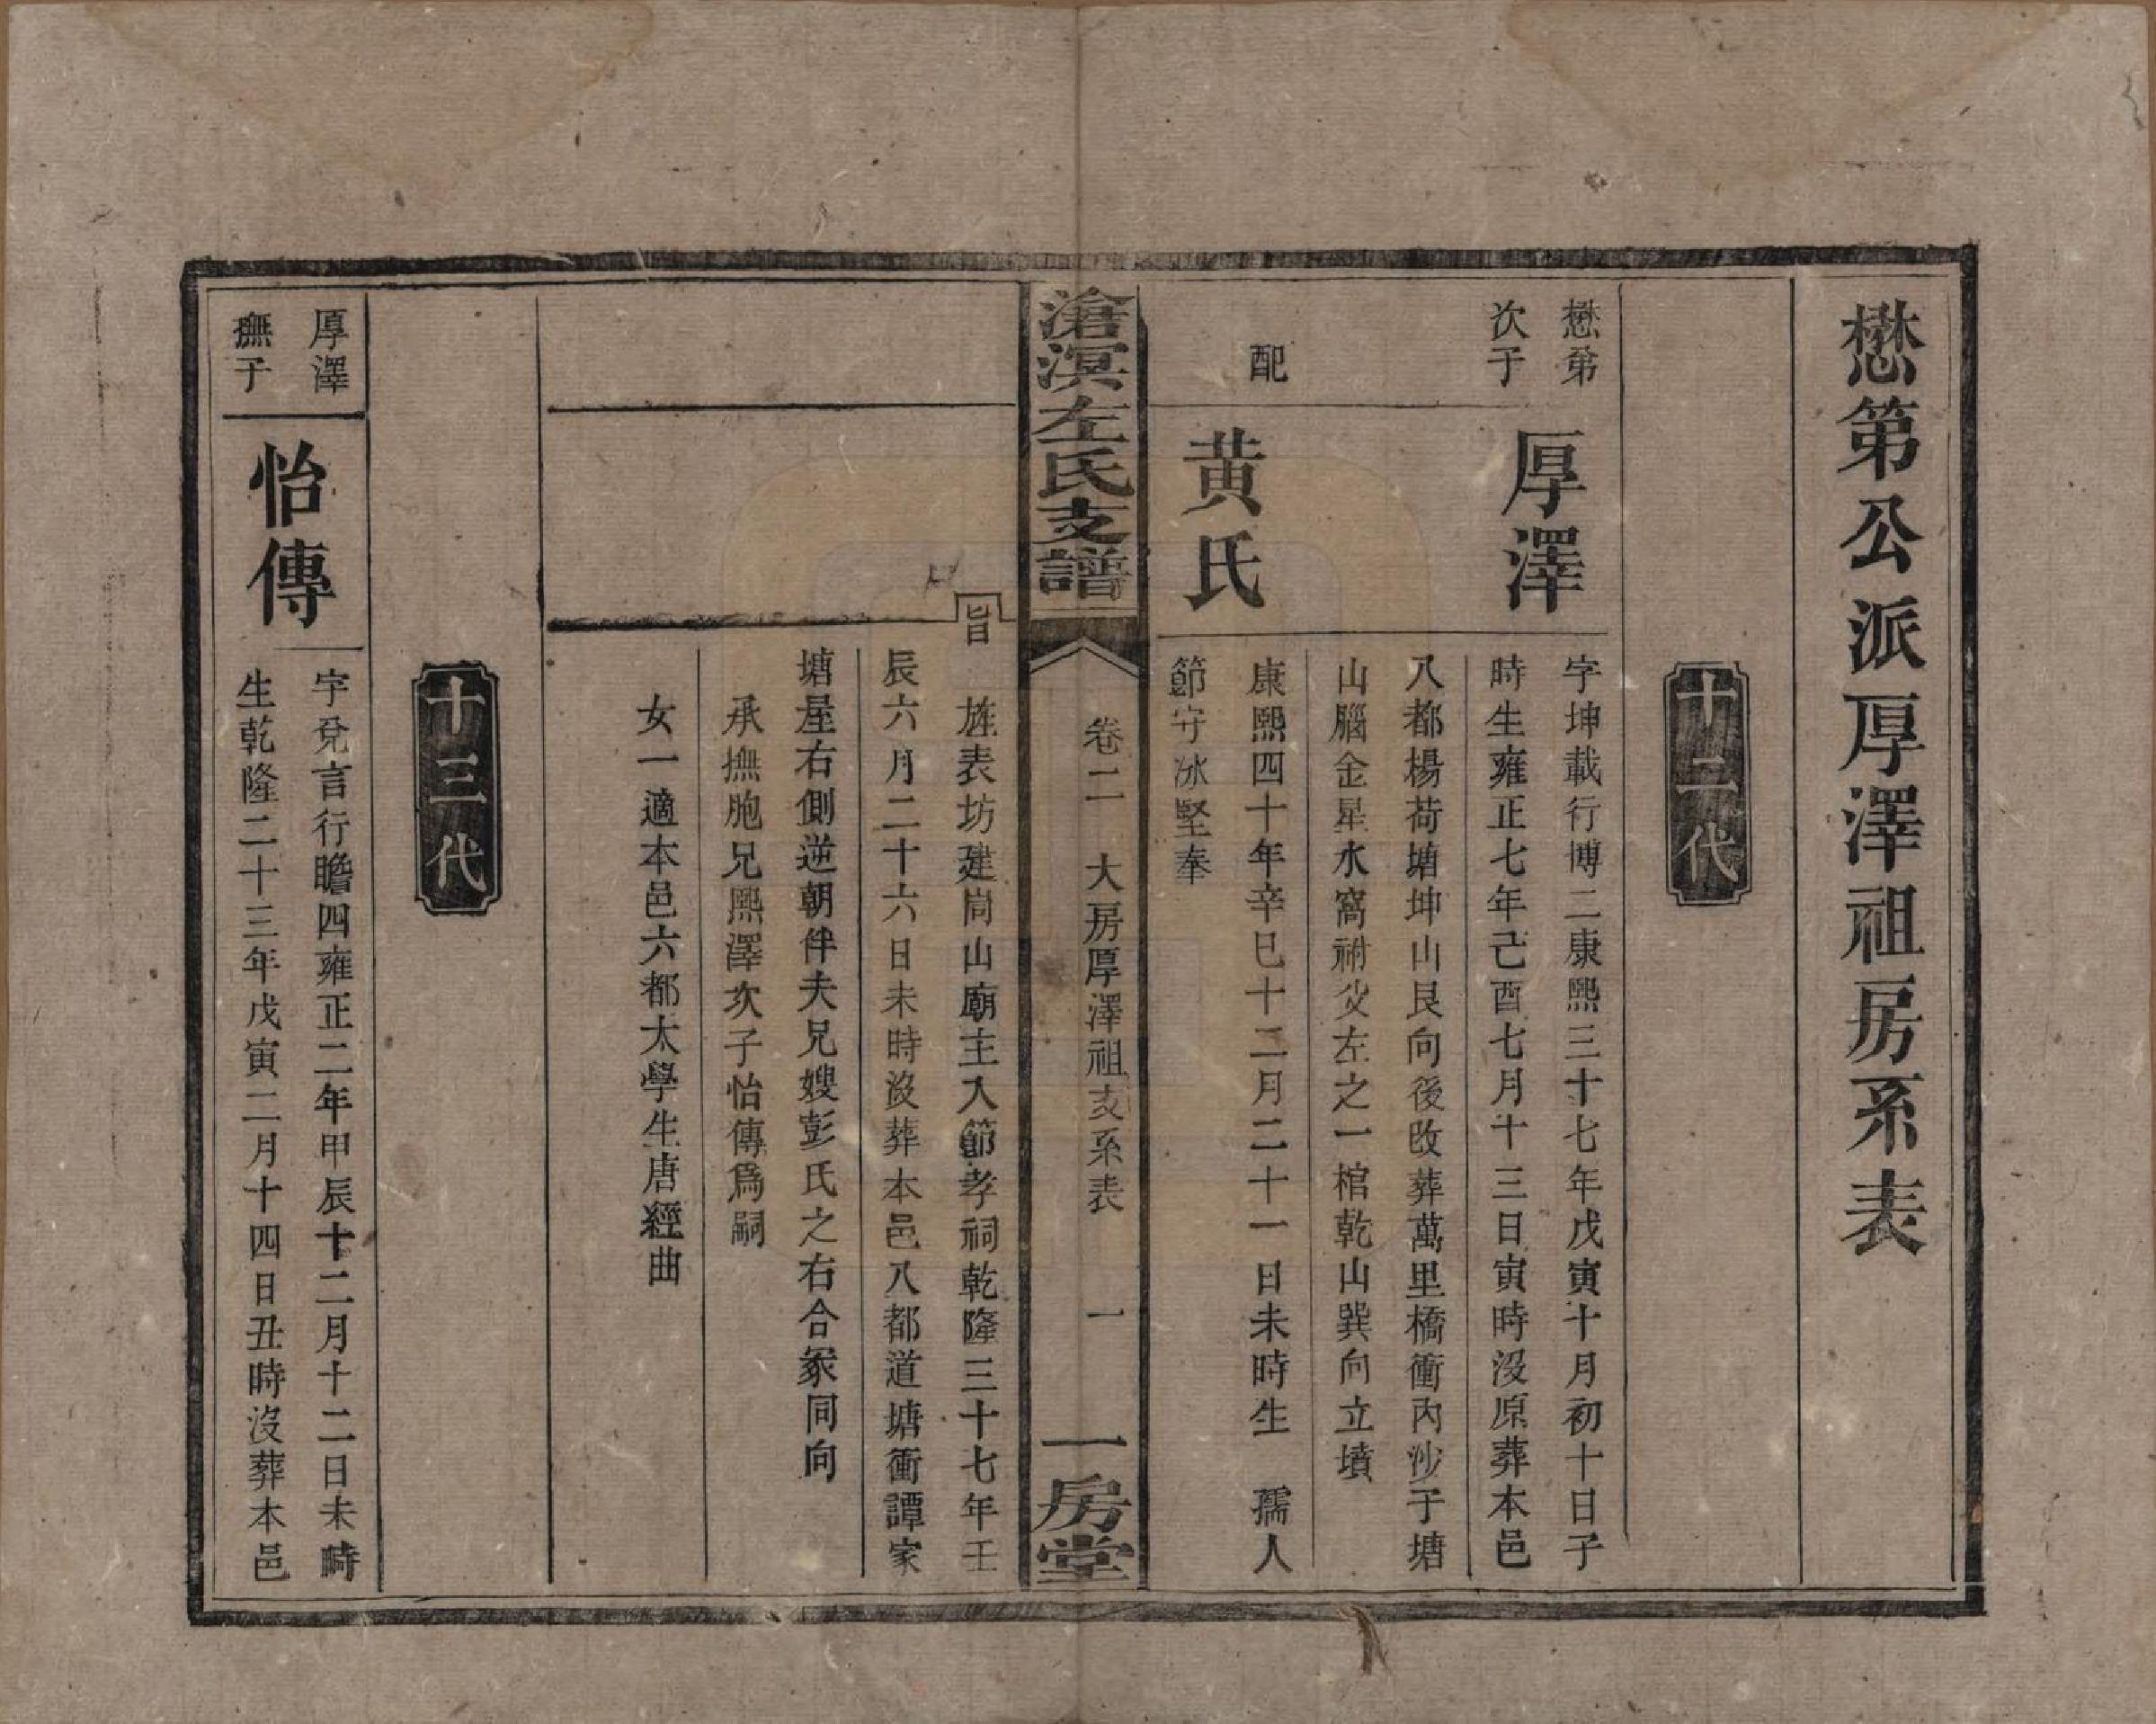 懋第公派厚澤祖房系表
十二代
懋第
次子
厚澤
字坤載行博二康熙三十七年戊寅十月初十日子
時生雍正七年己酉七月十三日寅時沒原葬本邑
八都楊荷塘坤山艮向後改葬萬里橋衝內沙子塘
山腦金星水窩祔父左之一棺乾山巽向立墳
配
黃氏
康熙四十年辛巳十二月二十一日未時生 孺人
節守冰堅奉
滄溟左氏支譜
卷二 大房厚澤祖支系表 一
一房堂
旨
旌表坊建尚山廟主入節孝祠乾隆三十七年壬
辰六月二十六日未時沒葬本邑八都道塘衝譚家
塘屋右側逆朝伴夫兄嫂彭氏之右合冢同向
承撫胞兄熙澤次子怡傳爲嗣
女一適本邑六都太學生唐經曲
十三代
厚澤
撫子
怡傳
字兌言行瞻四雍正二年甲辰十二月十二日未時
生乾隆二十三年戊寅二月十四日丑時沒葬本邑